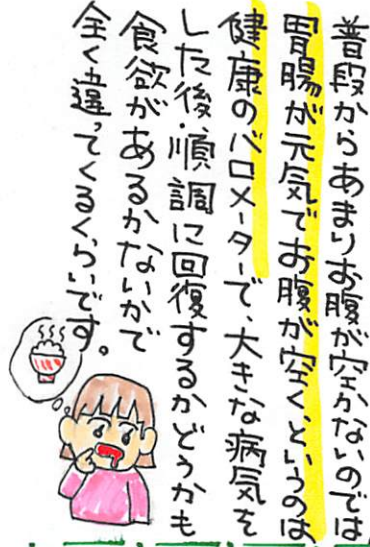 普段からあまりお腹が空かないのでは、
胃腸が元気でお腹が空く、というのは、
健康のバロメーターで、大きな病気を
した後、順調に回復するかどうかも
食欲があるかないかで
全く違ってくるくらいです。